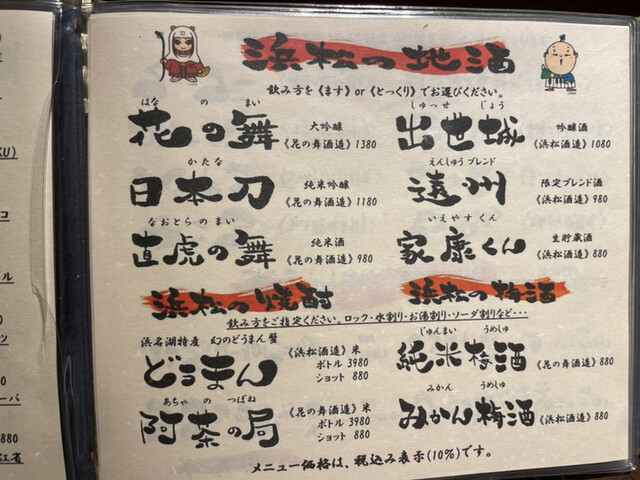 浜松の地酒
飲み方を《ます》or《とっくり》でお選びください。
はな の まい
花の舞 大吟醸 《花の舞酒造》1380
しゅっせ じょう
出世城 吟醸酒 《浜松酒造》1080
かたな
日本刀 純米吟醸 《花の舞酒造》1180
えんしゅうブレンド
遠州 限定ブレンド酒 《浜松酒造》980
なおとらのまい
直虎の舞 純米酒 《花の舞酒造》980
いえやすくん
家康くん 生貯蔵酒 《浜松酒造》880
浜松の焼酎
浜松の梅酒
飲み方をご指定ください。ロック・水割り・お湯割り・ソーダ割りなど・・・
浜名湖特産 幻のどうまん蟹
どうまん 《浜松酒造》米
ボトル 3980
ショット 880
じゅんまい うめしゅ
純米梅酒 《花の舞酒造》880
あちゃ の つぼね
阿茶の局 《花の舞酒造》米
ボトル 3980
ショット 880
みかん うめしゅ
みかん梅酒 《浜松酒造》880
メニュー価格は、税込み表示(10%)です。
KU)
コ
ル
ツ
ーバ
880
江省